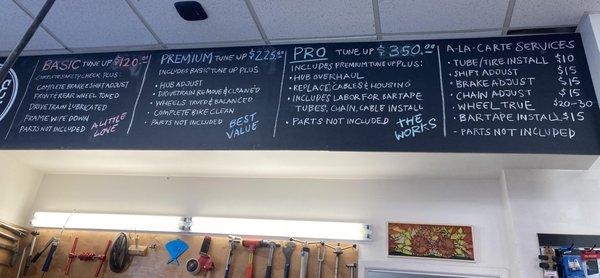 BASIC TUNE UP $120.00
COMPLETE SAFETY CHECK PLUS:
COMPLETE BRAKE & SHIFT ADJUST
FRONT & REAR WHEEL TRUED
DRIVETRAIN LUBRICATED
FRAME WIPE DOWN
PARTS NOT INCLUDED
A LITTLE
LOVE
PREMIUM TUNE UP $225.00
INCLUDES BASIC TUNE UP PLUS
• HUB ADJUST
• DRIVETRAIN REMOVED & CLEANED
• WHEELS TRUED & BALANCED
• COMPLETE BIKE CLEAN
• PARTS NOT INCLUDED
BEST
VALUE
PRO TUNE UP $350.00
INCLUDES PREMIUM TUNE UP PLUS:
• HUB OVERHAUL
• REPLACE CABLES & HOUSING
• INCLUDES LABOR FOR BAR TAPE
TUBES, CHAIN, CABLE INSTALL
• PARTS NOT INCLUDED
THE
WORKS
A-LA-CARTE SERVICES
• TUBE/TIRE INSTALL $10
• SHIFT ADJUST $15
• BRAKE ADJUST $15
• CHAIN ADJUST $15
• WHEEL TRUE $20-30
• BAR TAPE INSTALL $15
- PARTS NOT INCLUDED